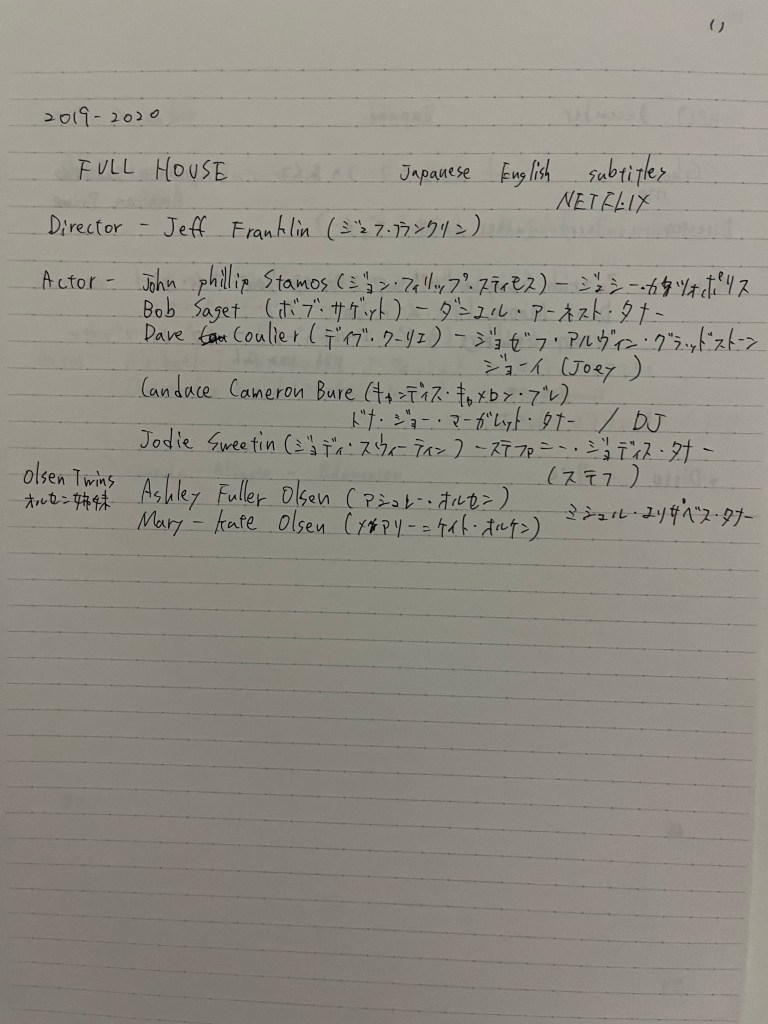 2019-2020
FULL HOUSE Japanese English subtitles
NETFLIX
Director - Jeff Franklin (ジェフ・フランクリン)
Actor - John phillip Stamos (ジョン・フィリップ・スティモス) - ジェシー・カタツォポリス
Bob Saget (ボブ・サゲット) - ダニエル・アーネスト・タナー
Dave Coulier (デイブ・クーリエ) - ジョゼフ・アルヴィン・グラッドストーン
ジョーイ (Joey)
Candace Cameron Bure (キャンディス・キャメロン・ブレ)
ドナ・ジョー・マーガレット・タナー / DJ
Jodie Sweetin (ジョディ・スウィーティン) - ステファニー・ジョディス・タナー
(ステフ)
Olsen Twins
オルセン姉妹
Ashley Fuller Olsen (アシュレー・オルセン)
Mary-kate Olsen (メアリー=ケイト・オルケン) ミシェル・エリザベス・タナー